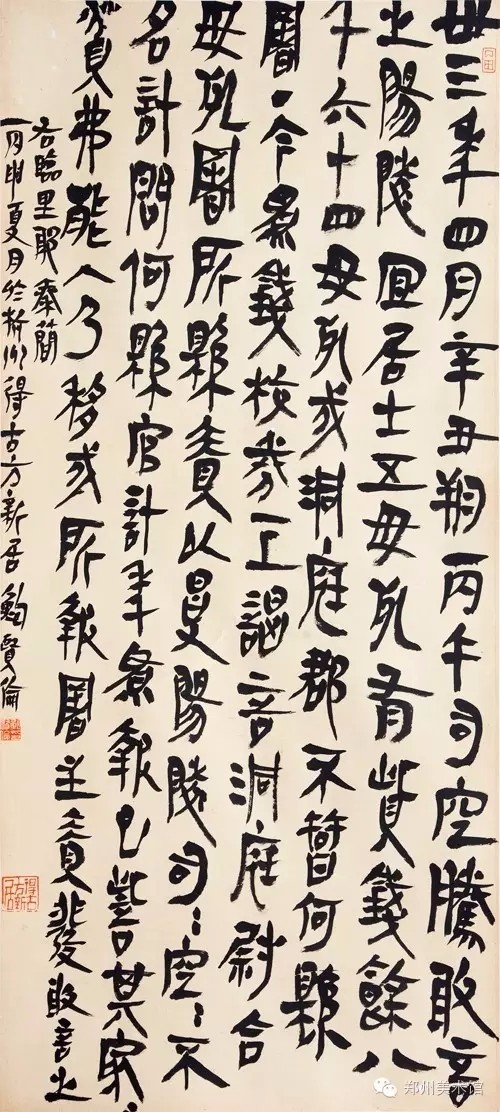 卅三年四月辛丑朔丙午司空騰敢言
之陽陵宜居士五毋死有貲錢餘八
千六十四毋死戍洞庭郡不智何縣
署·今為錢校券一上謁言洞庭尉令
毋死署所縣責以受陽陵司﹦空﹦不
名計問何縣官計年為報已訾其家﹦
貧弗能入乃移戍所報署主責發敢言之
右臨里耶秦簡
丙申夏月於杭州得古方新居鮑賢倫
郑州美术馆